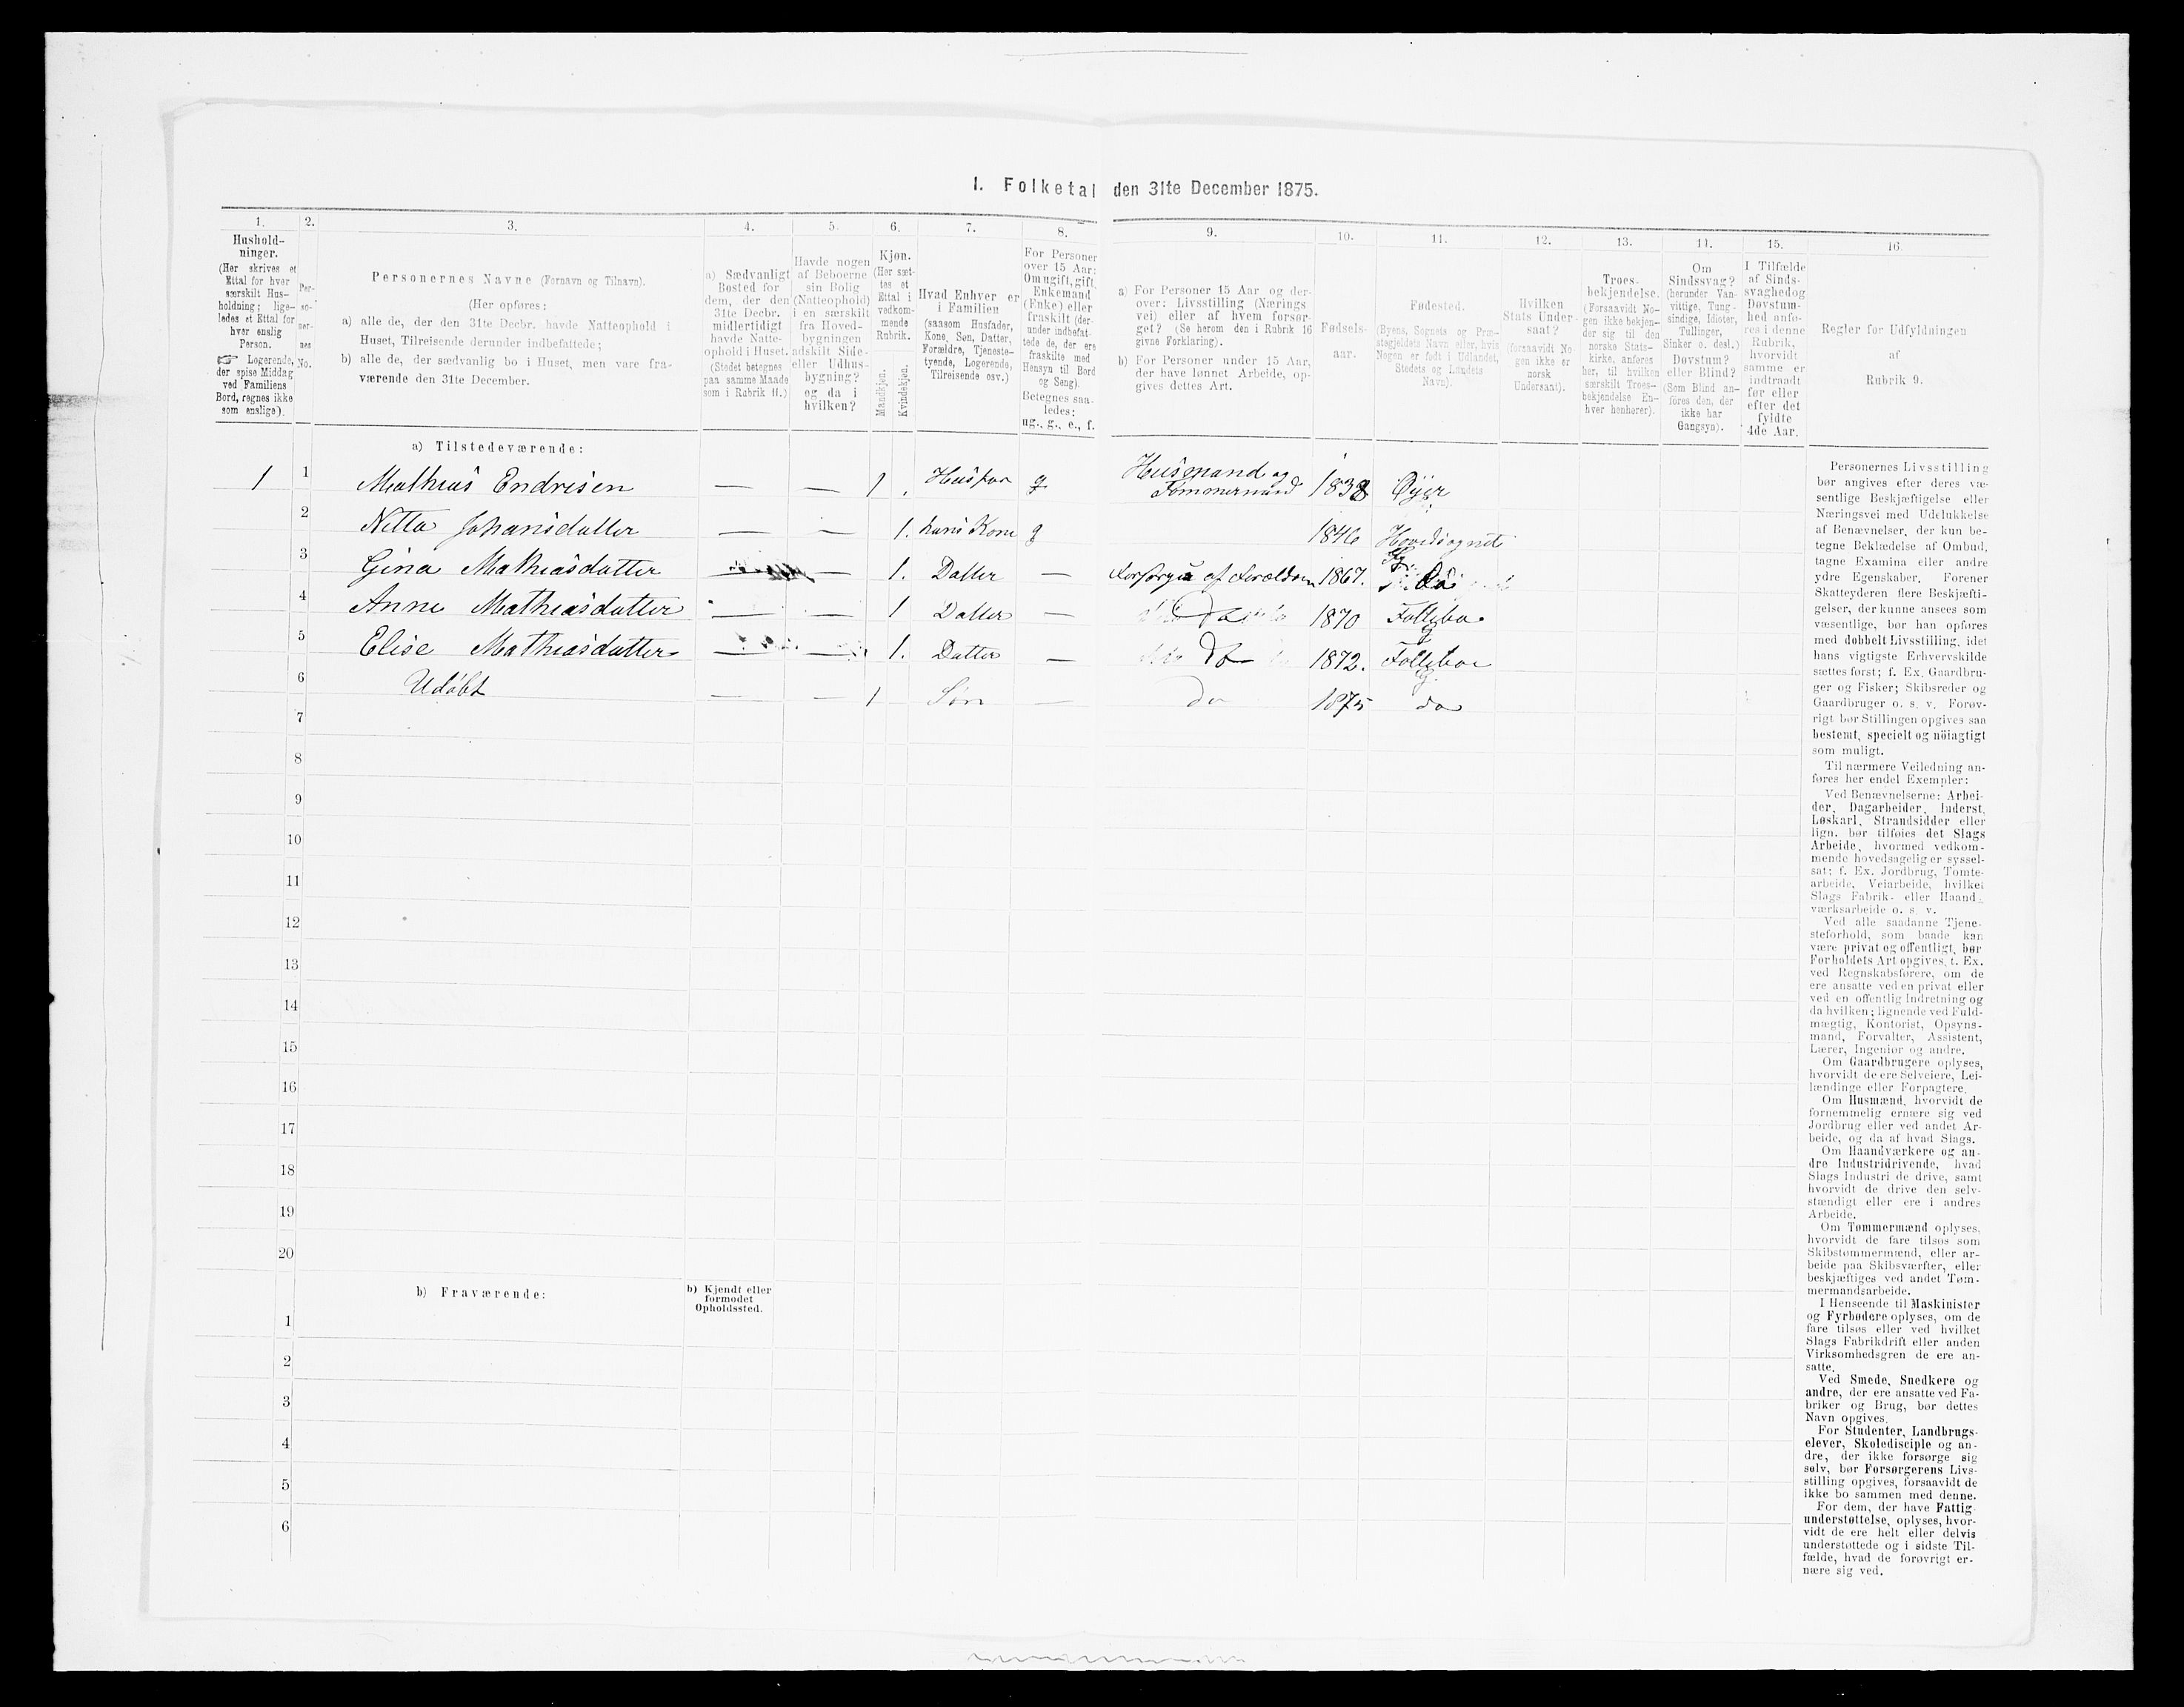 I. Folketal den 31te December 1875.
1.
Hushold-
ninger.
(Her skrives et
Ettal for hver
særskilt Hus-
holdning; lige-
ledes et Ettal for
hver enslig
Person.
☞ Logerende,
der spise Middag
ved Familiens
Bord, regnes ikke
som enslige).
2.
Per-
so-
ner-
nes
No.
3.
Personernes Navne (Fornavn og Tilnavn).
(Her opføres:
a) alle de, der den 31te Decbr. havde Natteophold i
Huset, Tilreisende derunder indbefattede;
b) alle de, der sædvanlig bo i Huset, men vare fra-
værende den 31te December.
4.
a) Sædvanligt
Bosted for
dem, der den
31te Decbr.
midlertidigt
havde Natte-
ophold i Huset.
(Stedet betegnes
paa samme Maade
som i Rubrik 11.)
5.
Havde nogen
af Beboerne
sin Bolig
(Natteophold)
i en særskilt
fra Hoved-
bygningen
adskilt Side-
eller Udhus-
bygning?
og da i
hvilken?
6.
Kjøn.
(Her sæt-
tes et
Ettal i
vedkom-
mende
Rubrik.
Mandkjøn.
Kvindekjøn.
7.
Hvad Enhver er
i Familien
(saasom Husfader,
Kone, Søn, Datter,
Forældre, Tjeneste-
tyende, Logerende,
Tilreisende osv.)
8.
For Personer
over 15 Aar:
Om ugift, gift,
Enkemand
(Enke) eller
fraskilt (der-
under indbefat-
tede de, der ere
fraskilte med
Hensyn til Bord
og Seng).
Betegnes saa-
ledes:
ug., g., e., f.
9.
a) For Personer 15 Aar og der-
over: Livsstilling (Nærings
vei) eller af hvem forsør-
get? (Se herom den i Rubrik 16
givne Forklaring).
b) For Personer under 15 Aar,
der have lønnet Arbeide, op-
gives dettes Art.
10.
Fødsels-
aar.
11.
Fødested.
(Byens, Sognets og Præ-
stegjeldets Navn eller, hvis
Nogen er født i Udlandet,
Stedets og Landets
Navn).
12.
Hvilken
Stats Under-
saat?
(forsaavidt No-
gen ikke er
norsk
Undersaat).
13.
Troes-
bekjendelse.
(Forsaavidt No-
gen ikke bekjen-
der sig til den
norske Stats-
kirke, anføres
her, til hvilken
særskilt Troes-
bekjendelse En-
hver henhører).
14.
Om
Sindssvag?
(herunder Van-
vittige, Tung-
sindige, Idioter,
Tullinger,
Sinker o. desl.)
Døvstum?
eller Blind?
(Som Blind an-
føres den, der
ikke har
Gangsyn).
15.
I Tilfælde
af Sinds-
svaghed og
Døvstum-
hed anfø-
res i denne
Rubrik,
hvorvidt
samme er
indtraadt
før eller
efter det
fyldte
4de Aar.
16.
Regler for Udfyldningen
af
Rubrik 9.
a) Tilstedeværende:
1 1 Mathias Endresen — — 1 Husfar g Husmand og Tømmermand 1838 Øyer
2 Netta Johansdatter — — 1. hans Kone g 1846 Hovedsognet
3 Gina Mathiasdatter — — 1. Datter — Forsørges af Forældrene 1867. Do
4 Anne Mathiasdatter — — 1 Datter — Do 1870 Follebo
5 Elise Mathiasdatter — — 1. Datter — Do 1872. Follebo
6 Udøbt — — 1 Søn — Do 1875 do
7
8
9
10
11
12
13
14
15
16
17
18
19
20
b) Fraværende:
b) Kjendt eller
formodet
Opholdssted.
1
2
3
4
5
6
Personernes Livsstilling
bør angives efter deres væ-
sentlige Beskjæftigelse eller
Næringsvei med Udelukkelse
af Benævnelser, der kun be-
tegne Beklædelse af Ombud,
tagne Examina eller andre
ydre Egenskaber. Forener
Skatteyderen flere Beskjæfti-
gelser, der kunne ansees som
væsentlige, bør han opføres
med dobbelt Livsstilling, idet
hans vigtigste Erhvervskilde
sættes først; f. Ex. Gaardbru-
ger og Fisker; Skibsreder og
Gaardbruger o. s. v. Forøv-
rigt bør Stillingen opgives saa
bestemt, specielt og nöiagtigt
som muligt.
Til nærmere Veiledning an-
føres her endel Exempler:
Ved Benævnelserne: Arbei-
der, Dagarbeider, Inderst,
Løskarl, Strandsidder eller
lign. bør tilføies det Slags
Arbeide, hvormed vedkom-
mende hovedsagelig er syssel-
sat; f. Ex. Jordbrug, Tomte-
arbeide, Veiarbeide, hvilket
Slags Fabrik- eller Haand-
værksarbeide o. s. v.
Ved alle saadanne Tjene-
steforhold, som baade kan
være privat og offentligt, bør
Forholdets Art opgives, t. Ex.
ved Regnskabsførere, om de
ere ansatte ved en privat eller
ved en offentlig Indretning og
da hvilken; lignende ved Fuld-
mægtig, Kontorist, Opsyns-
mand, Forvalter, Assistent,
Lærer, Ingeniør og andre.
Om Gaardbrugere oplyses,
hvorvidt de ere Selveiere, Lei-
lændinge eller Forpagtere.
Om Husmænd, hvorvidt de
fornemmelig ernære sig ved
Jordbrug eller ved andet Ar-
beide, og da af hvad Slags.
Om Haandværkere og an-
dre Industridrivende, hvad
Slags Industri de drive, samt
hvorvidt de drive den selv-
stændigt eller ere i andres
Arbeide.
Om Tømmermænd oplyses,
hvorvidt de fare tilsøs som
Skibstømmermænd, eller ar-
beide paa Skibsværfter, eller
beskjæftiges ved andet Tøm-
mermandsarbeide.
I Henseende til Maskinister
og Fyrbødere oplyses, om de
fare tilsøs eller ved hvilket
Slags Fabrikdrift eller anden
Virksomhedsgren de ere an-
satte.
Ved Smede, Snedkere og
andre, der ere ansatte ved Fa-
briker og Brug, bør dettes
Navn opgives.
For Studenter, Landbrugs-
elever, Skoledisciple og an-
dre, der ikke forsørge sig
selv, bør Forsørgerens Livs-
stilling opgives, forsaavidt de
ikke bo sammen med denne.
For dem, der have Fattig
understøttelse, oplyses, hvor-
vidt de ere helt eller delvis
understøttede og i sidste Til-
fælde, hvad de forøvrigt er-
nære sig ved.